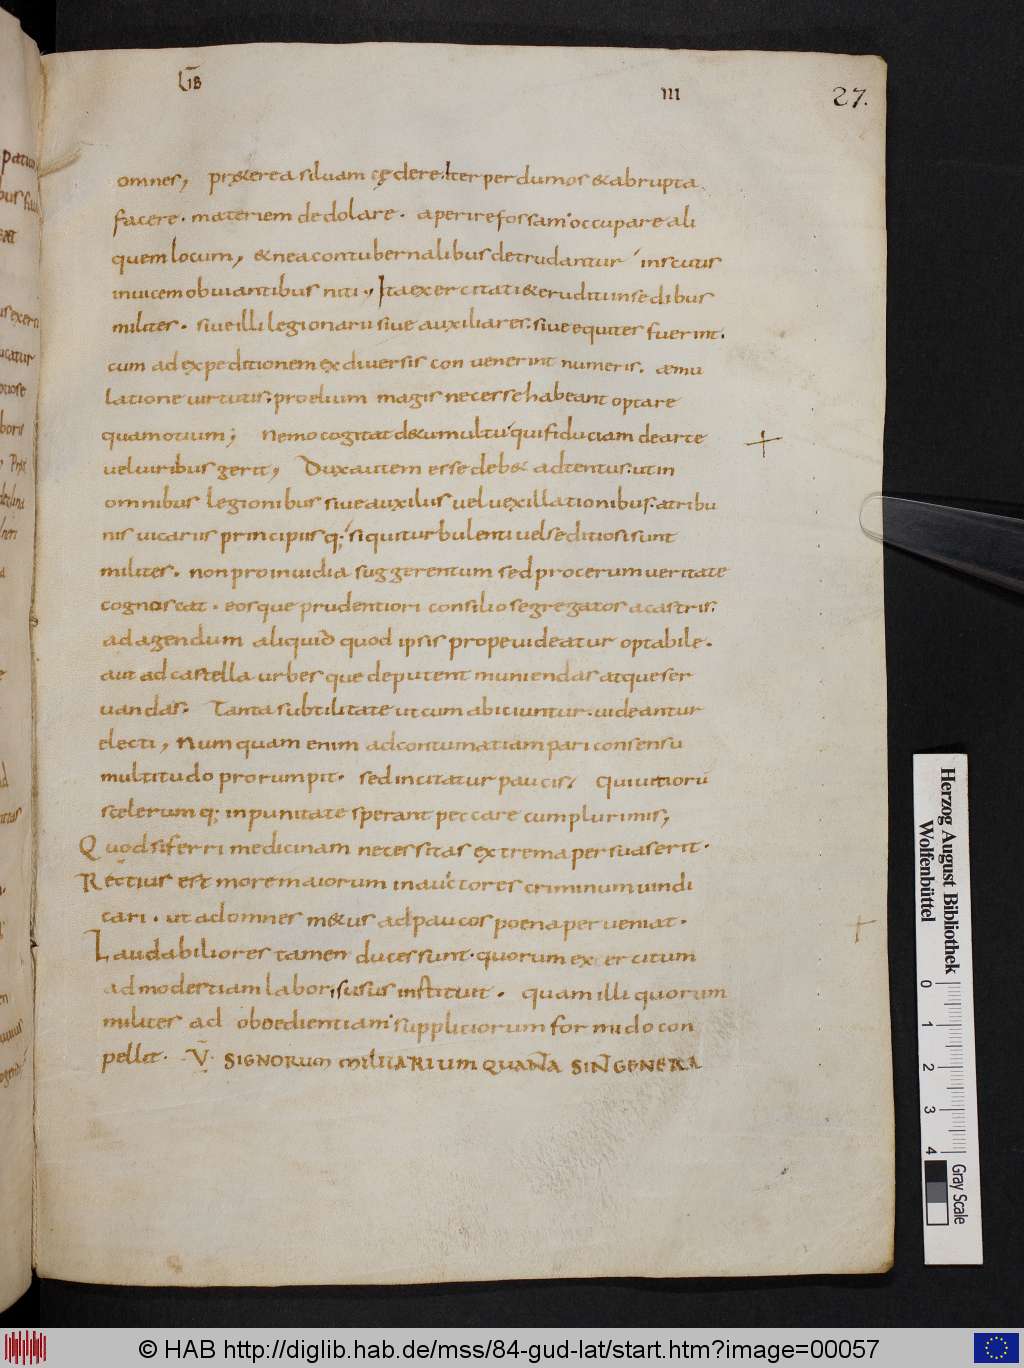 LIB III 27.
omnes, pr&erea siluam cędere. Iter per dumos & abrupta
facere. materiem dedolare. aperire fossam. occupare ali
quem locum, & nea contubernalibus detrudantur inscutis
inuicem obuiantibus niti, Ita exercitati & eruditi insedibus
milites. siue illi legionarii siue auxiliares. siue equites fuerint.
cum ad expeditionem ex diuersis conuenerint numeris. aemu
latione uirtutis. proelium magis necesse habeant optare
quam otium; nemo cogitat de tumultu qui fiduciam de arte
uel uiribus gerit, Dux autem esse deb& adtentus. ut in
omnibus legionibus siue auxiliis uel uexillationibus. a tribu
nis uicariis principiis q; si qui turbulenti uel seditiosi sunt
milites. non pro inuidia suggerentum sed pro cerum ueritate
cognoscat. eosque prudentiori consilio segregatos a castris.
ad agendum aliquid quod ipsis prope uideatur optabile.
aut ad castella urbes que deputent muniendas atque ser
uandas. Tanta subtilitate ut cum abiciuntur. uideantur
electi, Numquam enim ad contumatiam pari consensu
multitudo prorumpit. sed incitatur paucis, qui uitiorū
scelerum q; inpunitate sperant peccare cum plurimis,
Quod si ferri medicinam necessitas extrema persuaserit.
Rectius est more maiorum in auctores criminum uindi
cari. ut ad omnes m&us ad paucos poena perueniat.
Laudabiliores tamen duces sunt. quorum exercitum
ad modestiam labor, & usus instituit. quam illi quorum
milites ad oboedientiam suppliciorum formido con
pellit. V. SIGNORUM MILITARIUM QUANTA SINT GENERA
Herzog August Bibliothek
Wolfenbüttel
0 1 2 3 4
Gray Scale
© HAB http://diglib.hab.de/mss/84-gud-lat/start.htm?image=00057